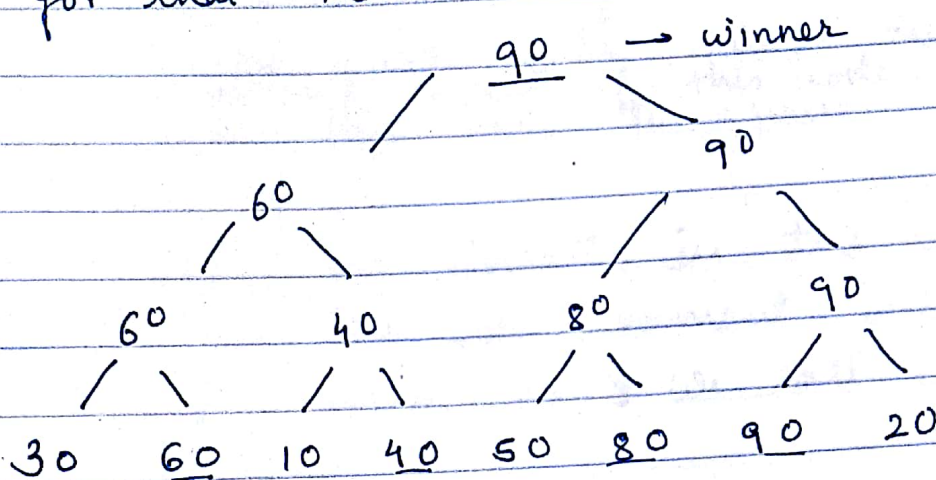 for
90 → winner
60 90
60 40 80 90
30 60 10 40 50 80 90 20